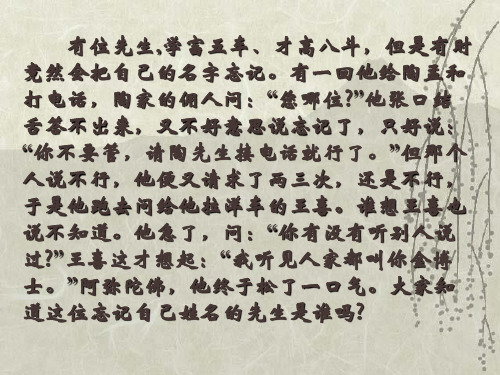 有位先生,学富五车、才高八斗，但是有时
竟然会把自己的名字忘记。有一回他给陶孟和
打电话，陶家的佣人问：“您哪位?”他张口结
舌答不出来，又不好意思说忘记了，只好说：
“你不要管，请陶先生接电话就行了。”但那个
人说不行，他便又请求了两三次，还是不行，
于是他跑去问给他拉洋车的王喜。谁想王喜也
说不知道。他急了，问：“你有没有听别人说
过?”王喜这才想起：“我听见人家都叫你金博
士。”阿弥陀佛，他终于松了一口气。大家知
道这位忘记自己姓名的先生是谁吗?